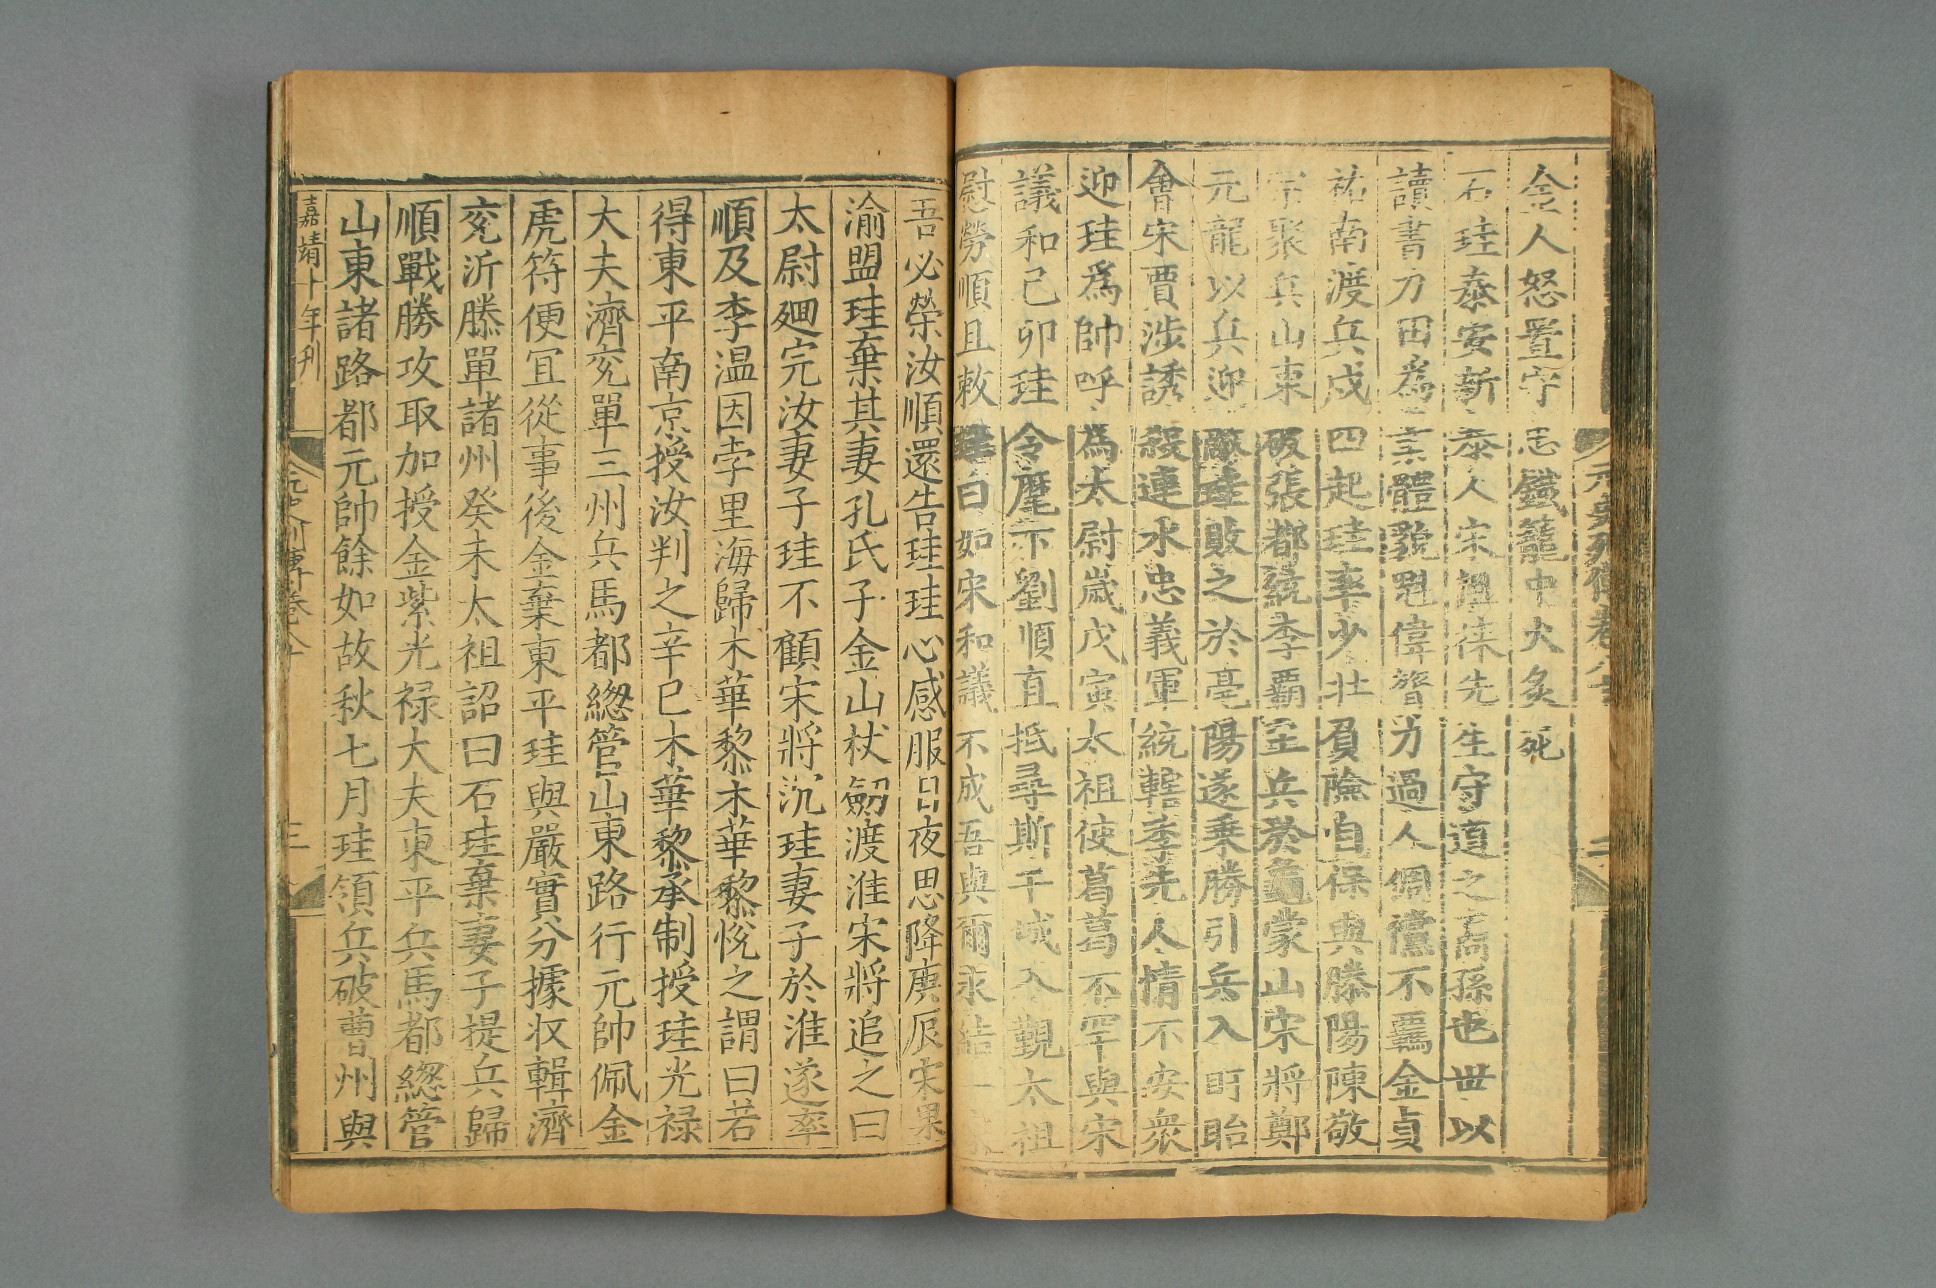 金人怒置守忠鐵籠中火炙死
石珪泰安新泰人宋徂徠先生守道之裔孫也世以
讀書力田為業體貌魁偉膂力過人倜儻不羈金貞
祐南渡兵戍四起珪率少壯負險自保與滕陽陳敬
宗聚兵山東破張都統李霸至兵於龜蒙山宋將鄭
元龍以兵迎敵珪敗之於亳陽遂乗勝引兵入盱眙
會宋賈涉誘殺連水忠義軍統轄季先人情不安衆
迎珪爲帥呼為太尉歳戊寅太祖使葛葛不罕與宋
議和己卯珪令麾下劉順直抵尋斯干城入覲太祖
慰勞順且敕珪曰如宋和議不成吾與爾永結一家
吾必榮汝順還告珪珪心感服日夜思降庚辰宋果
渝盟珪棄其妻孔氏子金山杖劒渡淮宋將追之曰
太尉廻完汝妻子珪不顧宋將沉珪妻子於淮遂率
順及李温因孛里海歸木華黎木華黎悅之謂曰若
得東平南京授汝判之辛巳木華黎承制授珪光禄
大夫濟兖單三州兵馬都總管山東路行元帥佩金
虎符便宜從事後金棄東平珪與嚴實分據收輯濟
兖沂滕單諸州癸未太祖詔曰石珪棄妻子提兵歸
順戰勝攻取加授金紫光禄大夫東平兵馬都總管
山東諸路都元帥餘如故秋七月珪領兵破曹州與
嘉靖十年刊